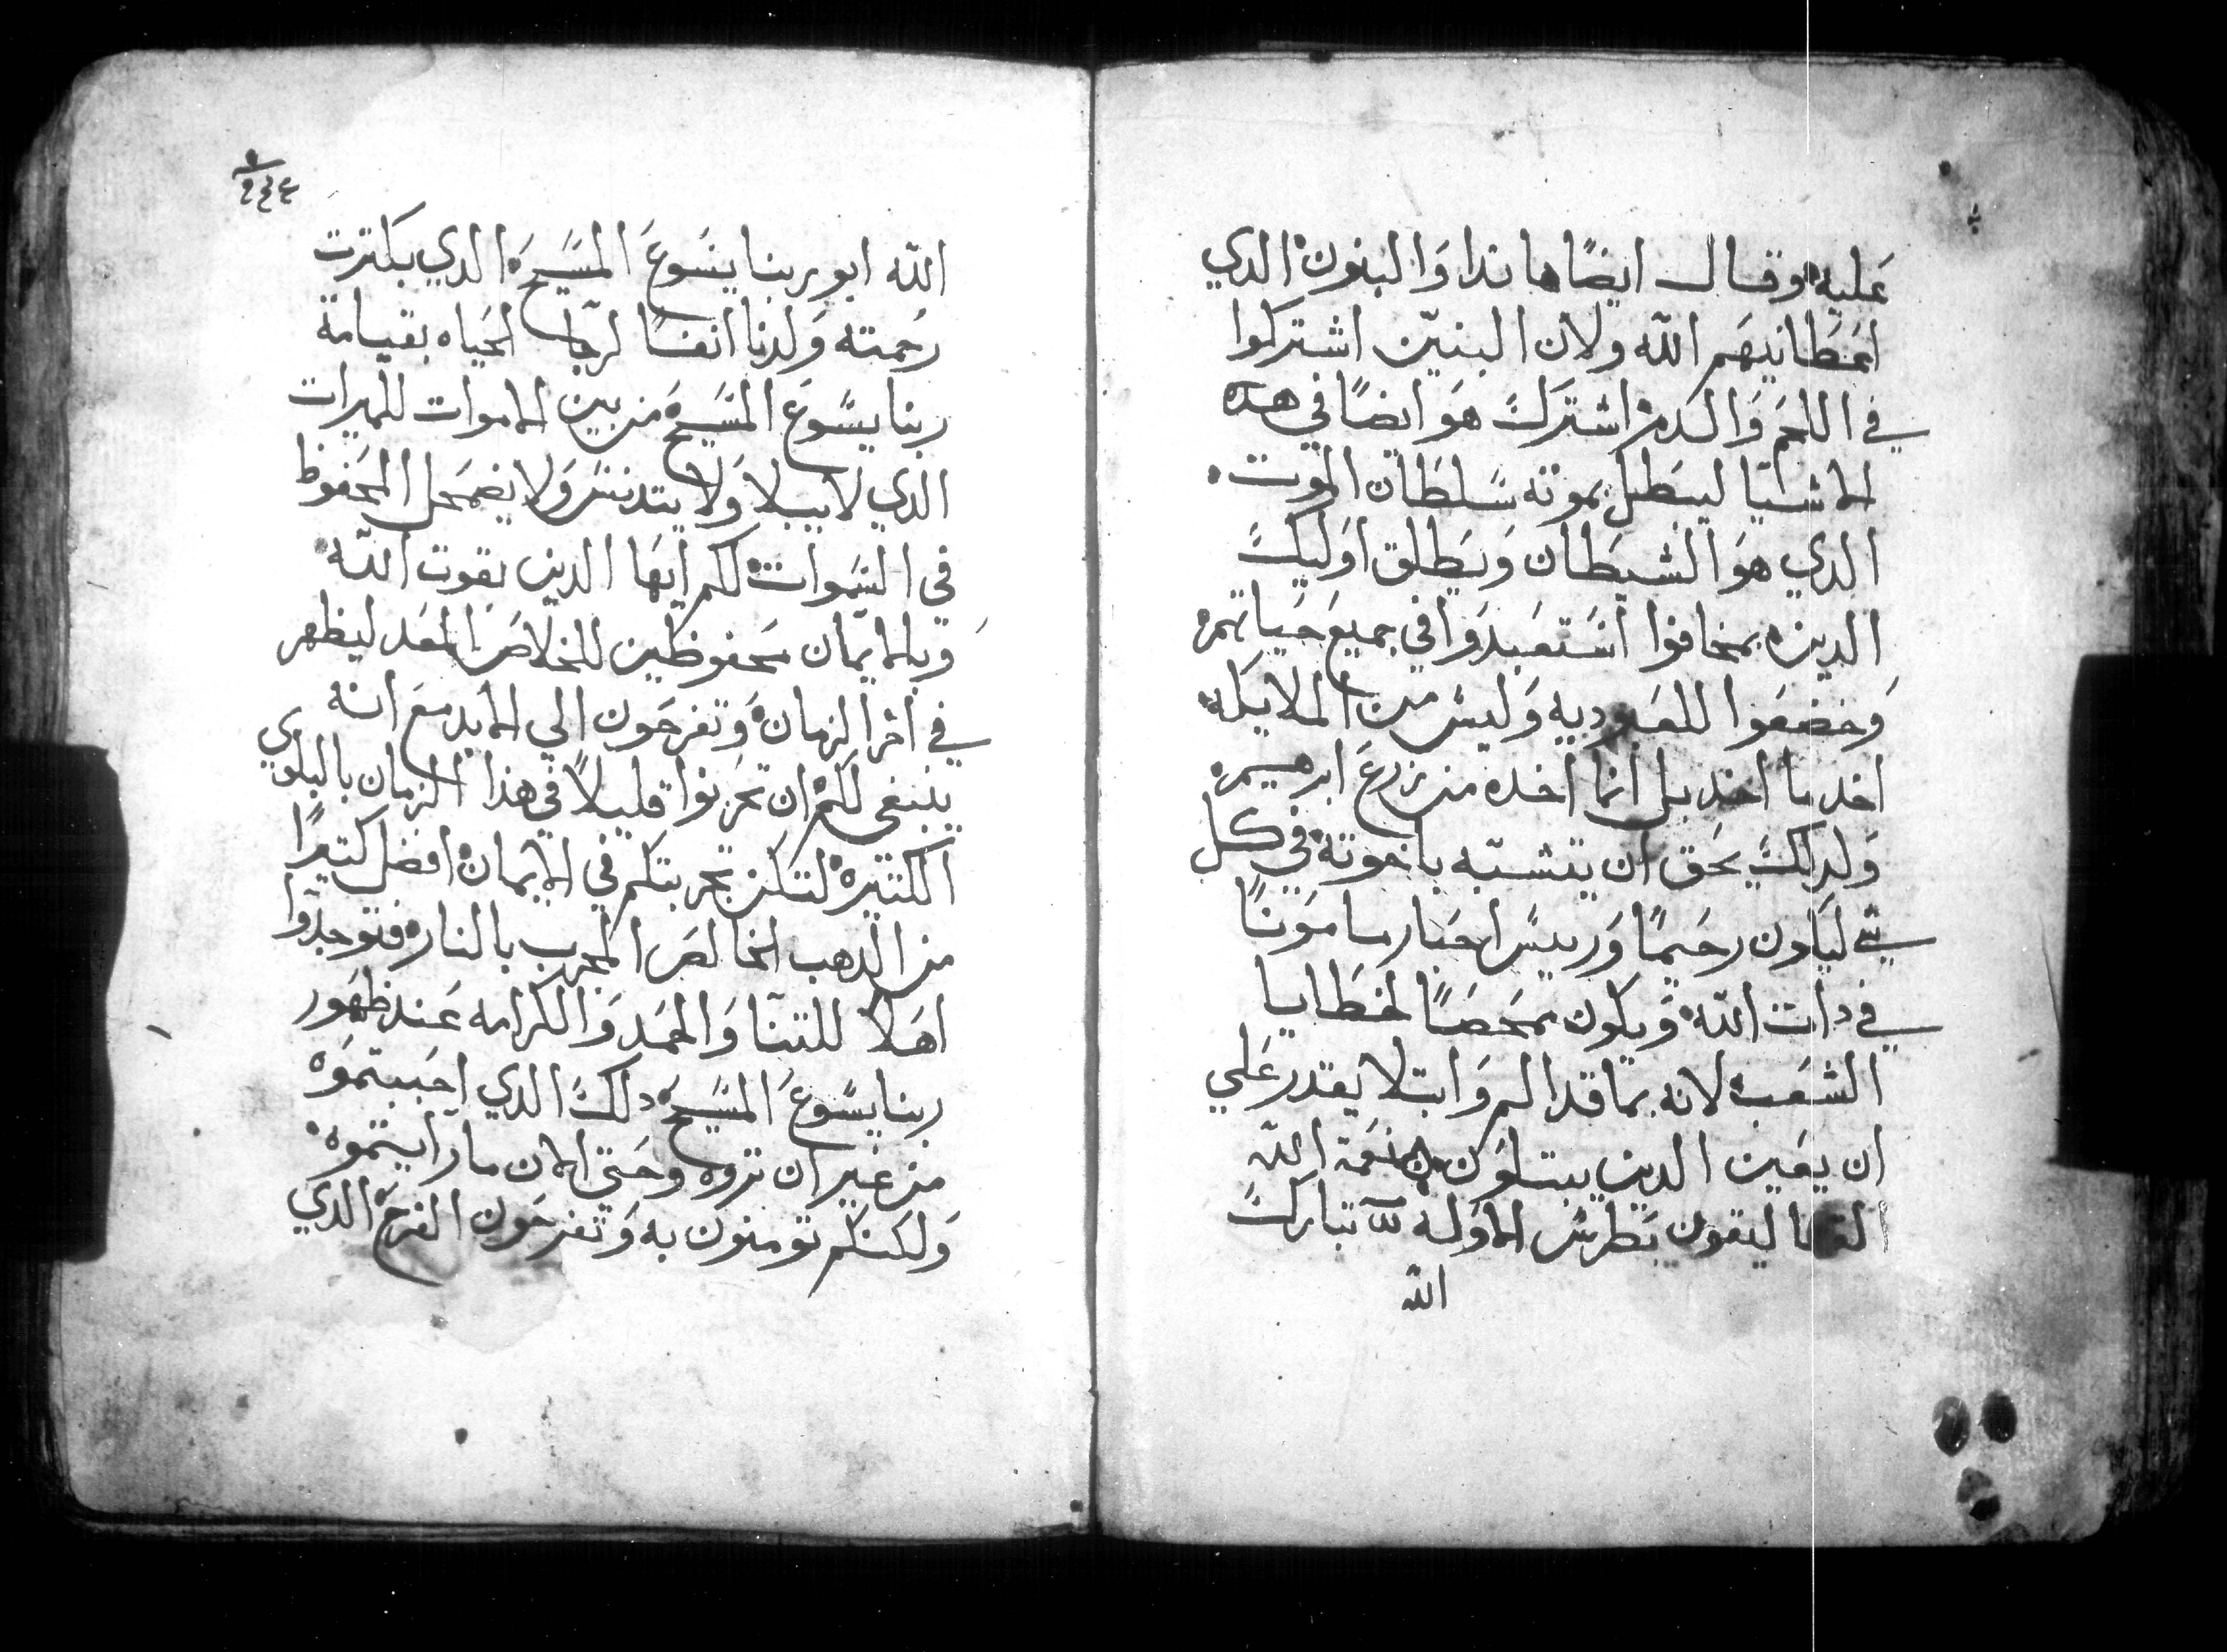 عليه وقال ايضًا هاندا والبنون الدي
اعطانيهم الله ولان البنين اشتركوا
في اللحم والدم اشترك هو ايضًا في هده
الاشيا ليبطل بموته سلطان الموت
الدي هو الشيطان ويطلق اوليك
الدين بمخافوا استعبدوا في جميع حياتهم
وخضعوا للعبوديه وليس من الملايكه
اخد ما اخد بل انما اخده من زرع ابرهيم
ولدلك يحق ان يتشبه باخوته في كل
شي ليكون رحيمًا وريس احبار مامونًا
في دات الله ويكون ممحصًا لخطايا
الشعب لانه بما قد الم وابتلا يقدر علي
ان يعين الدين يبتلون نعمة الله
ليقون بطرس الاوله تبارك
الله
٢٤٤
الله ابو ربنا يسوع المسيح الدي بكترت
رحمته ولدنا انفسًا لرجا الحياه بقيامة
ربنا يسوع المسيح من بين الاموات للميرات
الدي لا يبلا ولا يتدنس ولا يضمحل المحفوظ
في السموات لكم ايها الدين بقوت الله
وبالايمان محفوظين للخلاص المعد ليظهر
في اخر الزمان وتفرحون الي الابد مع انه
ينبغي لكم ان تحزنوا قليلاً في هذا الزمان بالبلوي
الكتيره لتكن تجربتكم في الايمان افضل كتيرًا
من الدهب الخالص المجرب بالنار فتوجدوا
اهلاً للتنا والحمد والكرامه عند ظهور
ربنا يسوع المسيح دلك الدي احببتموه
من غير ان تروه وحتي الان ما رايتموه
ولكنكم تومنون به وتفرحون الفرح الدي